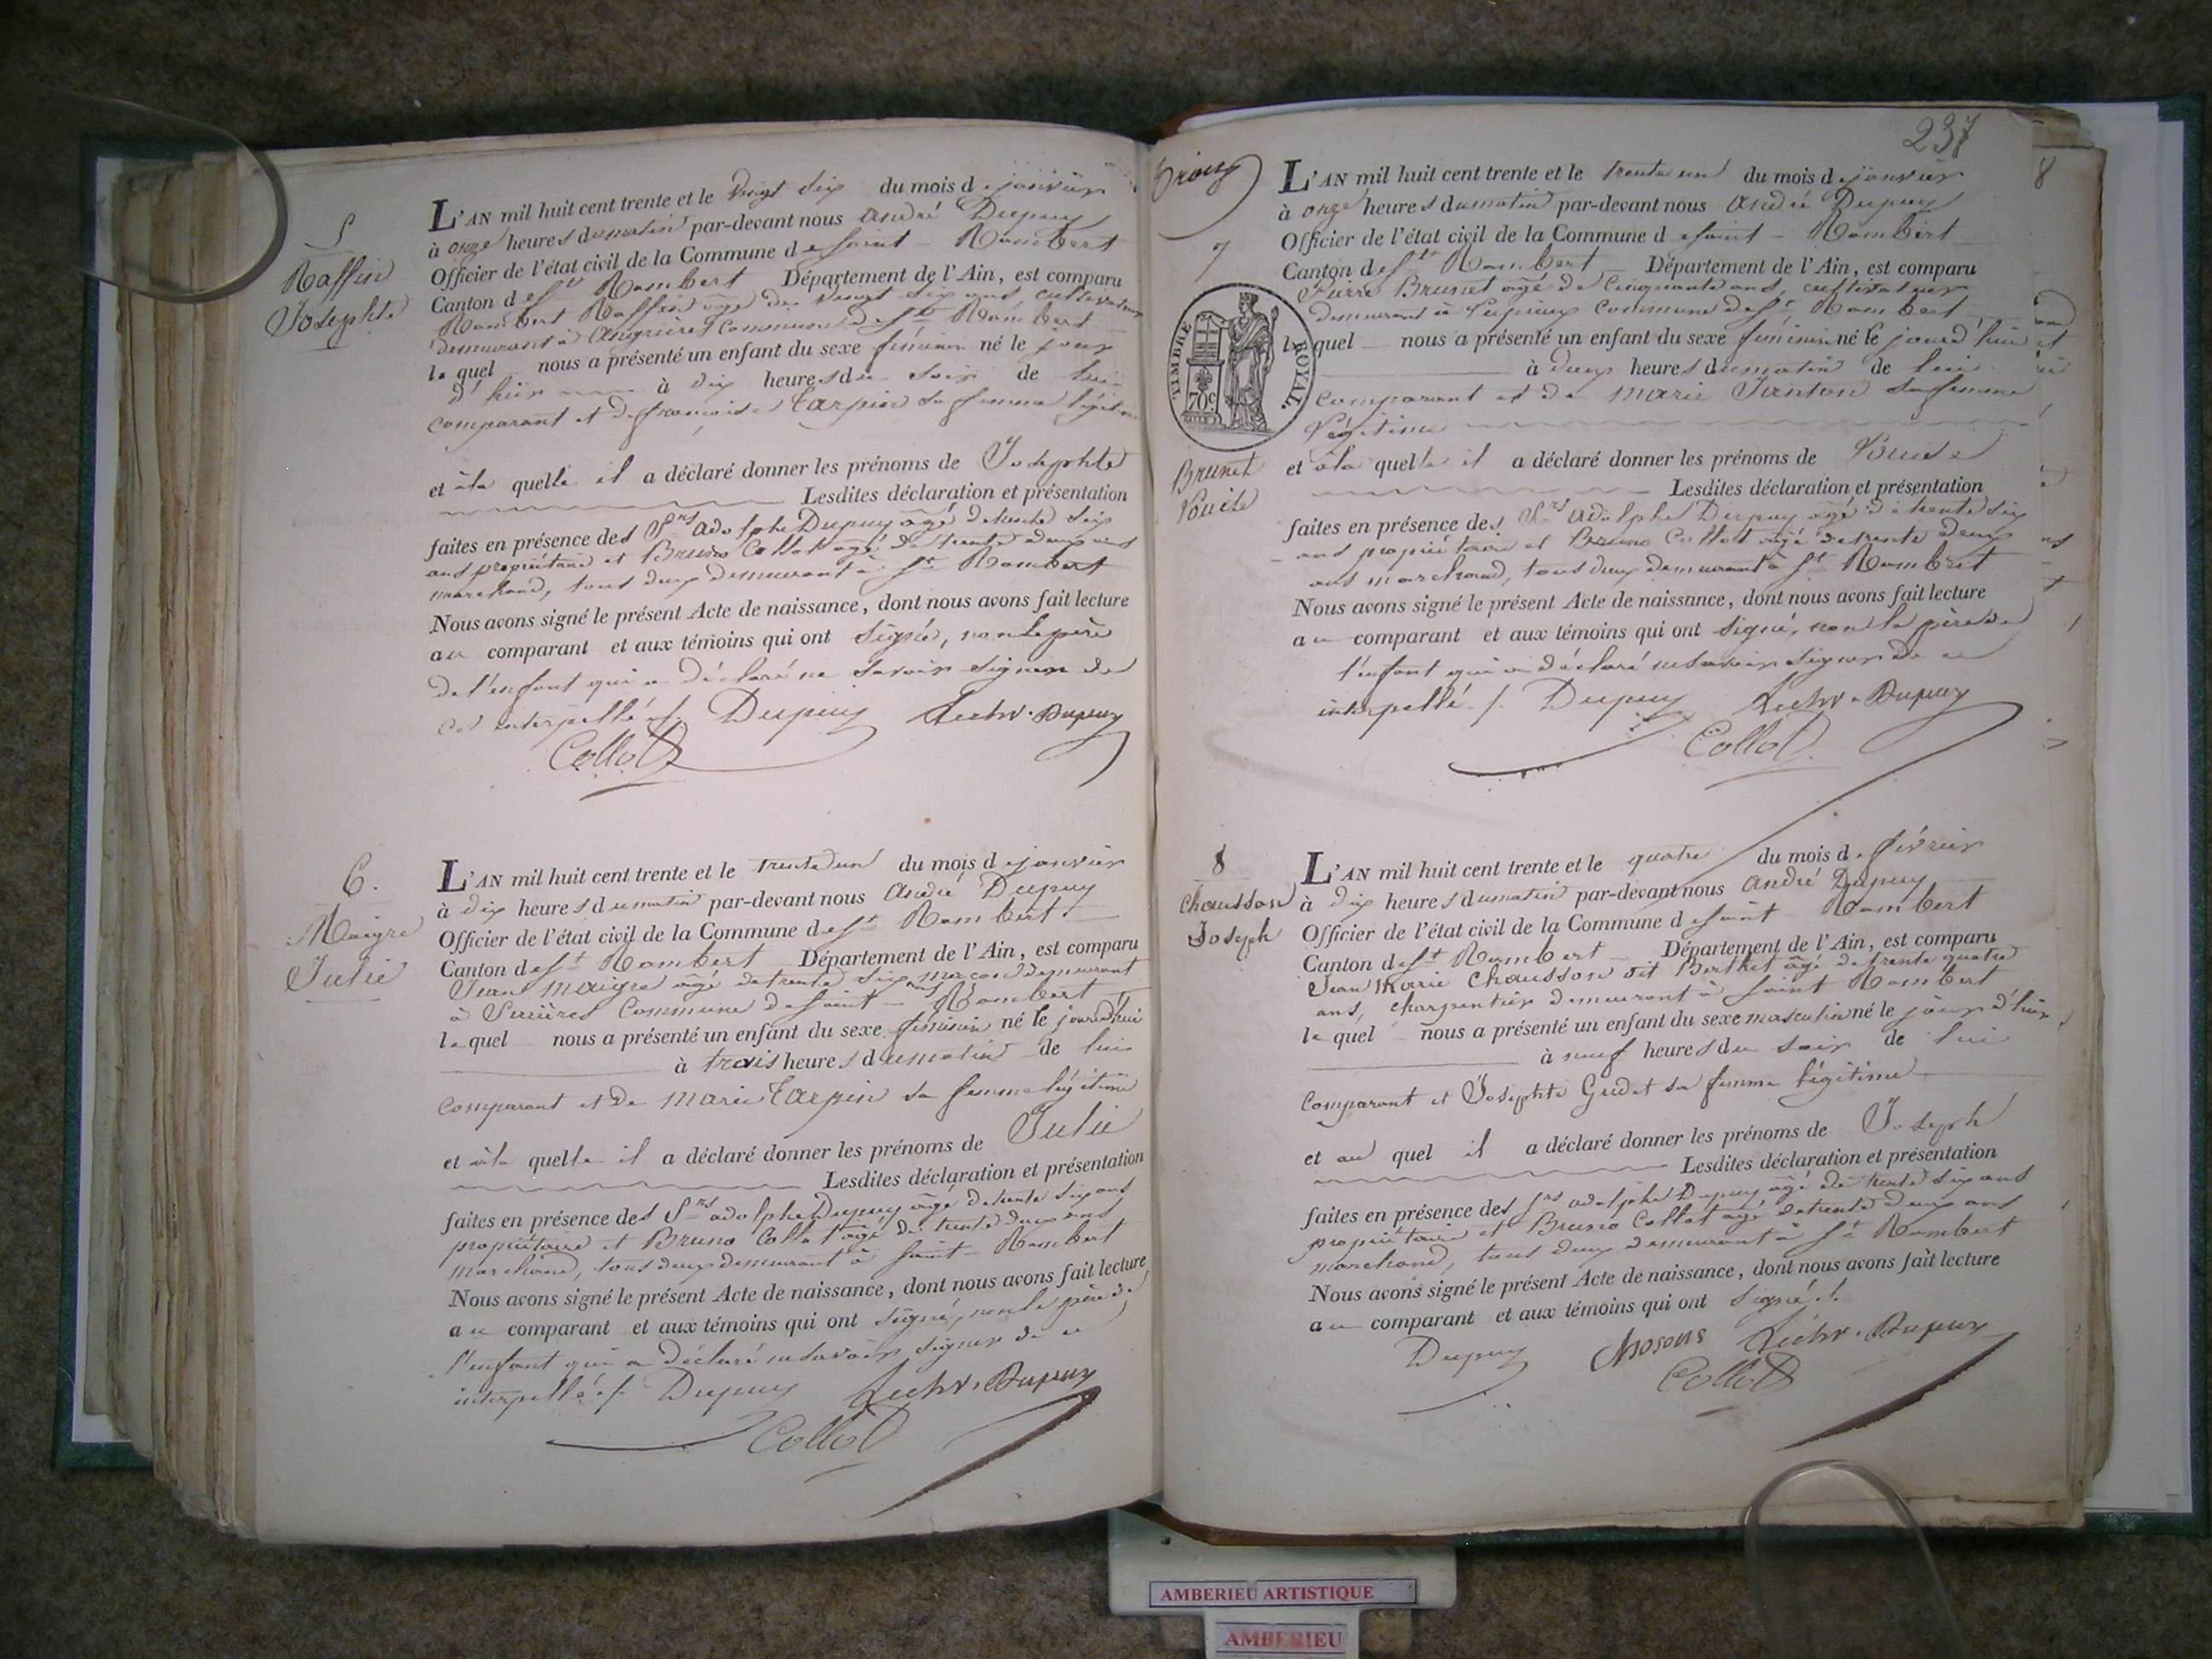 5
Raffin
Josephte
L'AN mil huit cent trente et le vingt six du mois de janvier
à onze heures du matin par-devant nous André Dupuy
Officier de l'état civil de la Commune de Saint-Rambert
Canton de St Rambert Département de l'Ain, est comparu
Rambert Raffin âgé de vingt six ans, cultivateur
demeurant à Angrières commune de St Rambert
lequel nous a présenté un enfant du sexe féminin né le jour
d'hier à dix heures du soir de lui
comparant et de françoise Tarpin sa femme légitime
et à la quelle il a déclaré donner les prénoms de Josephte
Lesdites déclaration et présentation
faites en présence des Srs adolphe Dupuy âgé de trente six
ans propriétaire et Bruno Collot âgé de trente deux ans
marchand, tous deux demeurant à St Rambert
Nous avons signé le présent Acte de naissance, dont nous avons fait lecture
au comparant et aux témoins qui ont signé, non le père
de l'enfant qui a déclaré ne savoir signer de
ce interpellé ./. Dupuy Dupuy
Collot
6.
Maigre
Julie
L'AN mil huit cent trente et le trente un du mois de janvier
à dix heures du matin par-devant nous André Dupuy
Officier de l'état civil de la Commune de St Rambert
Canton de St Rambert Département de l'Ain, est comparu
Jean Maigre âgé de trente six ans maçon demeurant
à Serrières Commune de Saint-Rambert
lequel nous a présenté un enfant du sexe féminin né le jourd'hui
à trois heures du matin de lui
comparant et de Marie Tarpin sa femme légitime
et à la quelle il a déclaré donner les prénoms de Julie
Lesdites déclaration et présentation
faites en présence des Srs adolphe Dupuy âgé de trente six ans
propriétaire et Bruno Collot âgé de trente deux ans
marchand, tous deux demeurant à Saint-Rambert
Nous avons signé le présent Acte de naissance, dont nous avons fait lecture
au comparant et aux témoins qui ont signé, non le père de
l'enfant qui a déclaré ne savoir signer de ce
interpellé ./. Dupuy Dupuy
Collot
237
7
TIMBRE ROYAL.
70c
Brunet
Louise
L'AN mil huit cent trente et le trente un du mois de janvier
à onze heures du matin par-devant nous André Dupuy
Officier de l'état civil de la Commune de Saint-Rambert
Canton de St Rambert Département de l'Ain, est comparu
Pierre Brunet âgé de cinquante ans, cultivateur
demeurant à commune de St Rambert
lequel nous a présenté un enfant du sexe féminin né le jourd'hui
à deux heures du matin de lui
comparant et de Marie Janton sa femme
légitime
et à la quelle il a déclaré donner les prénoms de Louise
Lesdites déclaration et présentation
faites en présence des Srs Adolphe Dupuy âgé de trente six
ans propriétaire et Bruno Collot âgé de trente deux
ans marchand, tous deux demeurant à St Rambert
Nous avons signé le présent Acte de naissance, dont nous avons fait lecture
au comparant et aux témoins qui ont signé, non le père de
l'enfant qui a déclaré ne savoir signer de ce
interpellé ./. Dupuy Dupuy
Collot
8
Chausson
Joseph
L'AN mil huit cent trente et le quatre du mois de février
à dix heures du matin par-devant nous André Dupuy
Officier de l'état civil de la Commune de Saint-Rambert
Canton de St Rambert Département de l'Ain, est comparu
Jean Marie Chausson dit Berthet âgé de trente quatre
ans, charpentier demeurant à Saint Rambert
lequel nous a présenté un enfant du sexe masculin né le jour d'hier
à neuf heures du soir de lui
comparant et Josephte Gudet sa femme légitime
et au quel il a déclaré donner les prénoms de Joseph
Lesdites déclaration et présentation
faites en présence des Srs adolphe Dupuy âgé de trente six ans
propriétaire et Bruno Collot âgé de trente deux ans
marchand, tous deux demeurant à St Rambert
Nous avons signé le présent Acte de naissance, dont nous avons fait lecture
au comparant et aux témoins qui ont signé ./.
Dupuy Chosons Dupuy
Collot
8
AMBERIEU ARTISTIQUE
AMBERIEU